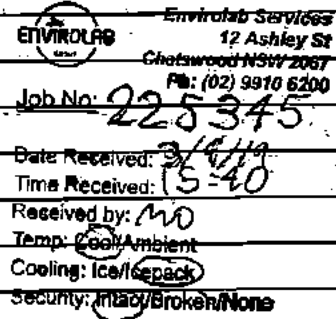 Envirolab Services
ENVIROLAB
12 Ashley St
Chatswood NSW 2067
Ph: (02) 9910 6200
Job No: 225345
Date Received: 3/9/19
Time Received: 15-40
Received by: MO
Temp: Cool/Ambient
Cooling: Ice/Icepack
Security: Intact/Broken/None